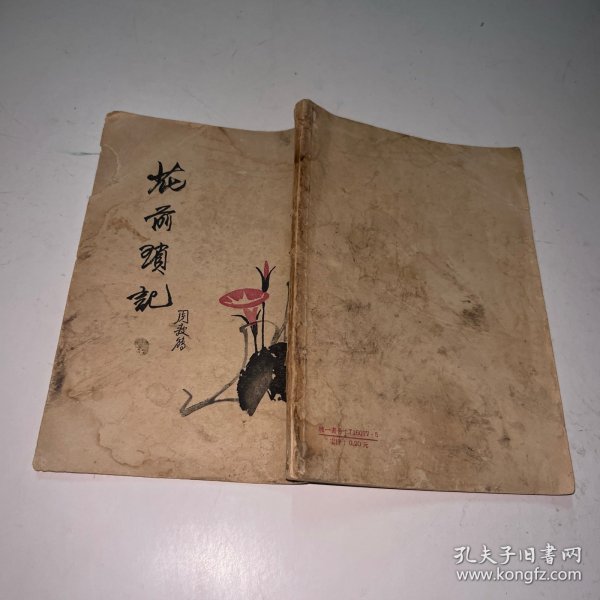 花前瑣記
周瘦鵑
統一書号:T10077·5
定价:0.20元
孔夫子旧书网
www.kongfz.com